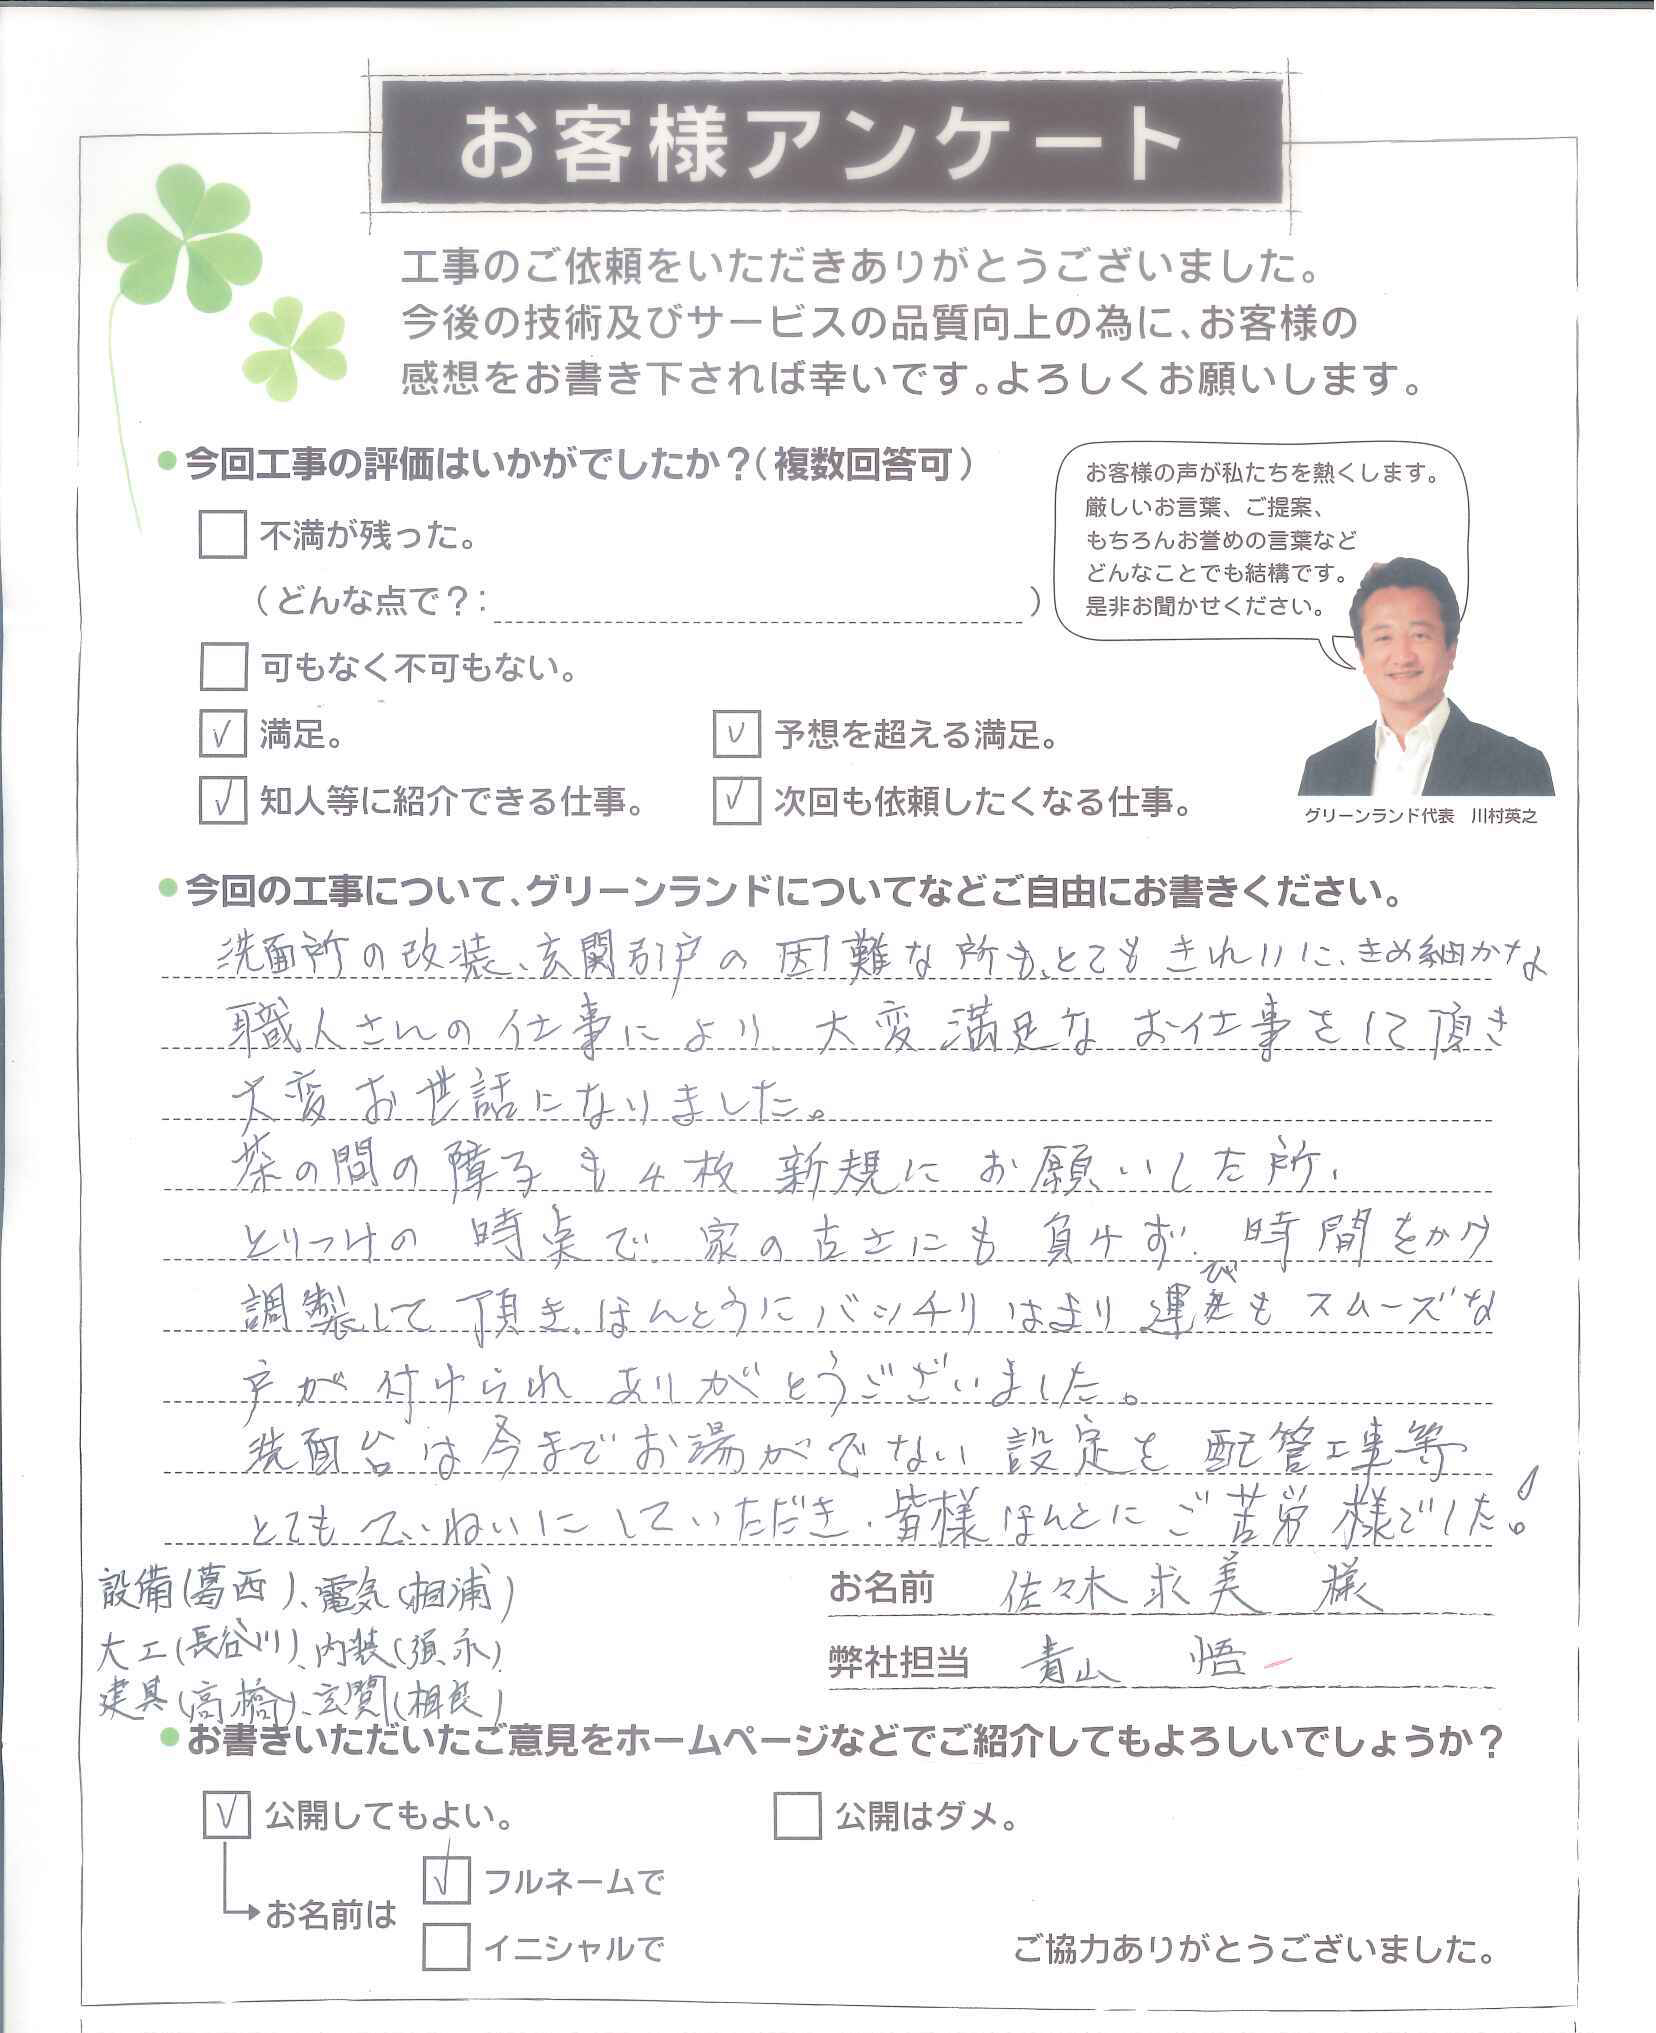 お客様アンケート
工事のご依頼をいただきありがとうございました。
今後の技術及びサービスの品質向上の為に、お客様の
感想をお書き下されば幸いです。よろしくお願いします。
●今回工事の評価はいかがでしたか？（複数回答可）
不満が残った。
（どんな点で？：　）
可もなく不可もない。
✓ 満足。
✓ 予想を超える満足。
✓ 知人等に紹介できる仕事。
✓ 次回も依頼したくなる仕事。
お客様の声が私たちを熱くします。
厳しいお言葉、ご提案、
もちろんお誉めの言葉など
どんなことでも結構です。
是非お聞かせください。
グリーンランド代表　川村英之
●今回の工事について、グリーンランドについてなどご自由にお書きください。
洗面所の改装、玄関引戸の困難な所も、とてもきれいに、きめ細かな
職人さんの仕事により、大変満足なお仕事をして頂き
大変お世話になりました。
茶の間の障子も4枚新規にお願いした所、
とりつけの時点で、家の古さにも負けず、時間をかけ
調製して頂き、ほんとうにバッチリはまり運びもスムーズな
戸が付けられありがとうございました。
洗面台は今までお湯がでない設定を配管工事等
とてもていねいにしていただき、皆様ほんとにご苦労様でした!。
設備(葛西)、電気(相浦)
大工(長谷川)、内装(須永)
建具(高橋)、玄関(相良)
お名前　佐々木求美　様
弊社担当　青山　悟
●お書きいただいたご意見をホームページなどでご紹介してもよろしいでしょうか？
✓ 公開してもよい。
公開はダメ。
お名前は
✓ フルネームで
イニシャルで
ご協力ありがとうございました。